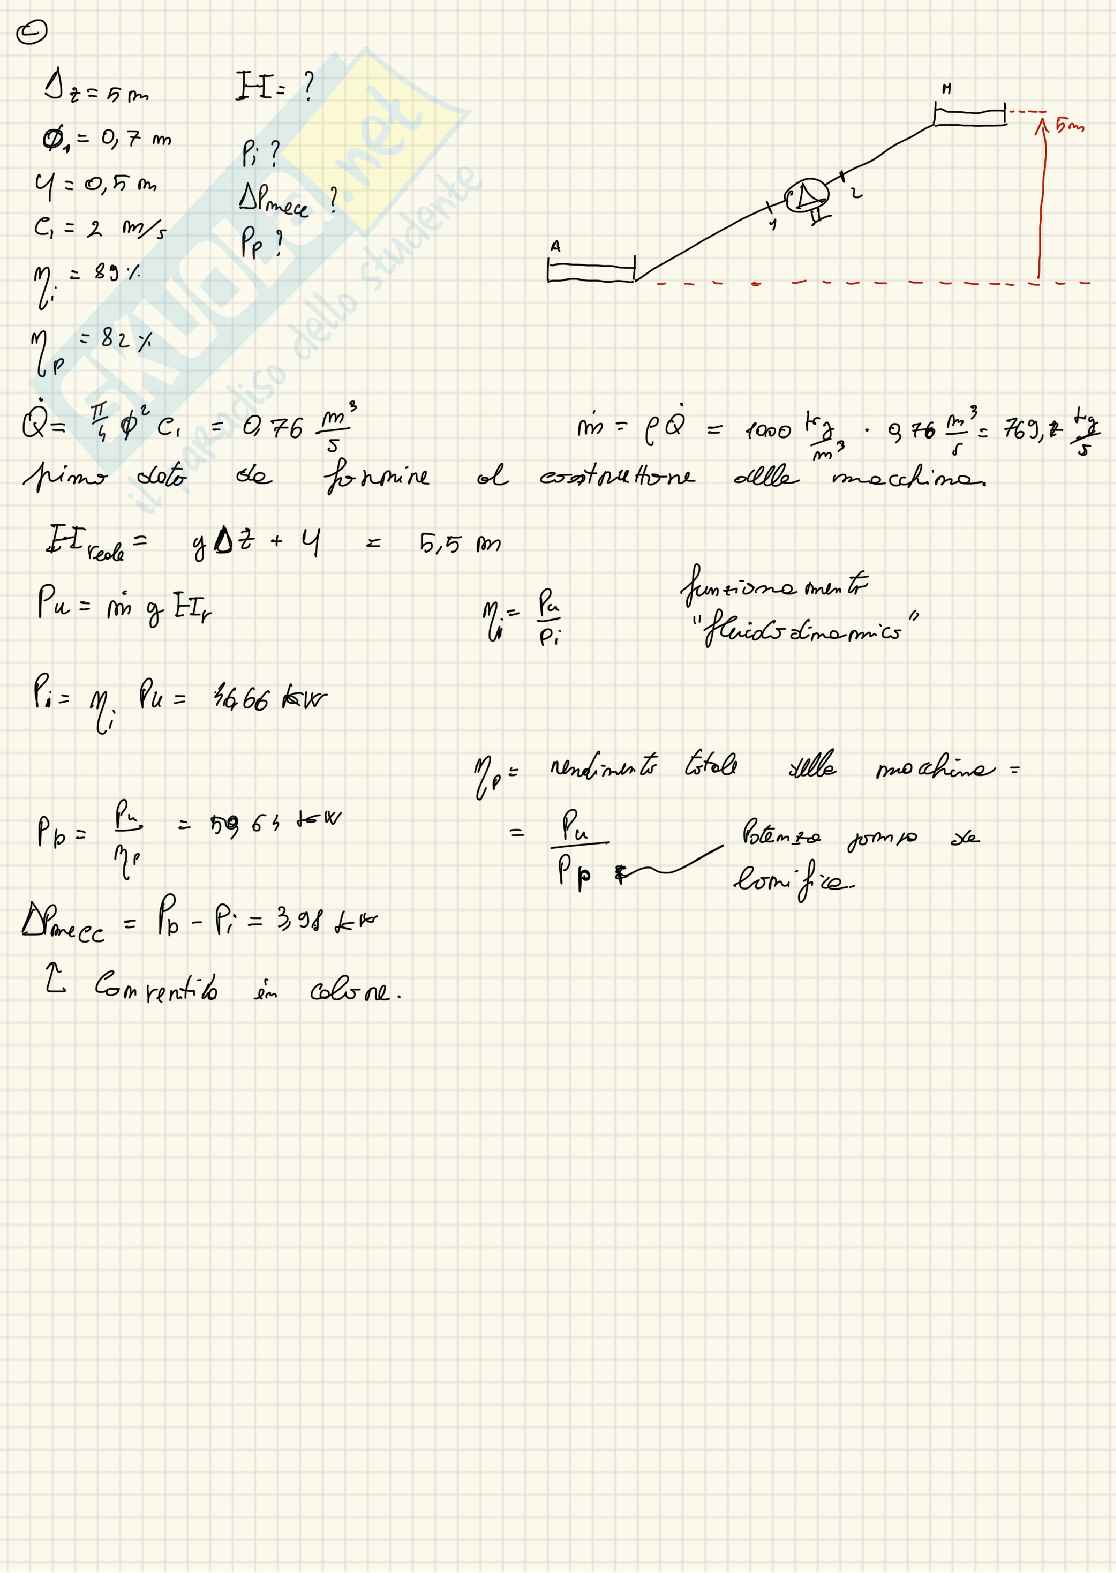 Δz = 5 m H = ?
ϕ₁ = 0,7 m Pi ?
Y = 0,5 m ΔPmecc ?
C₁ = 2 m/s Pp ?
ηi = 89 %
ηp = 82 %
A
1
2
M
5m
Q̇ = π/4 ϕ² C₁ = 0,76 m³/s ṁ = ρ Q̇ = 1000 kg/m³ · 0,76 m³/s = 769,2 kg/s
primo dato da fornire al costruttore della macchina.
H reale = gΔz + Y = 5,5 m
Pu = ṁ g Hr ηi = Pu/Pi funzionamento
"fluidodinamico"
Pi = ηi Pu = 36,66 kW
ηp = rendimento totale della macchina =
Pp = Pu/ηp = kW = Pu/Pp Potenza pompa da
bonifica.
ΔPmecc = Pp - Pi = 3,98 kW
↑ Convertito in calore.
SKUOLA.net
il paradiso dello studente